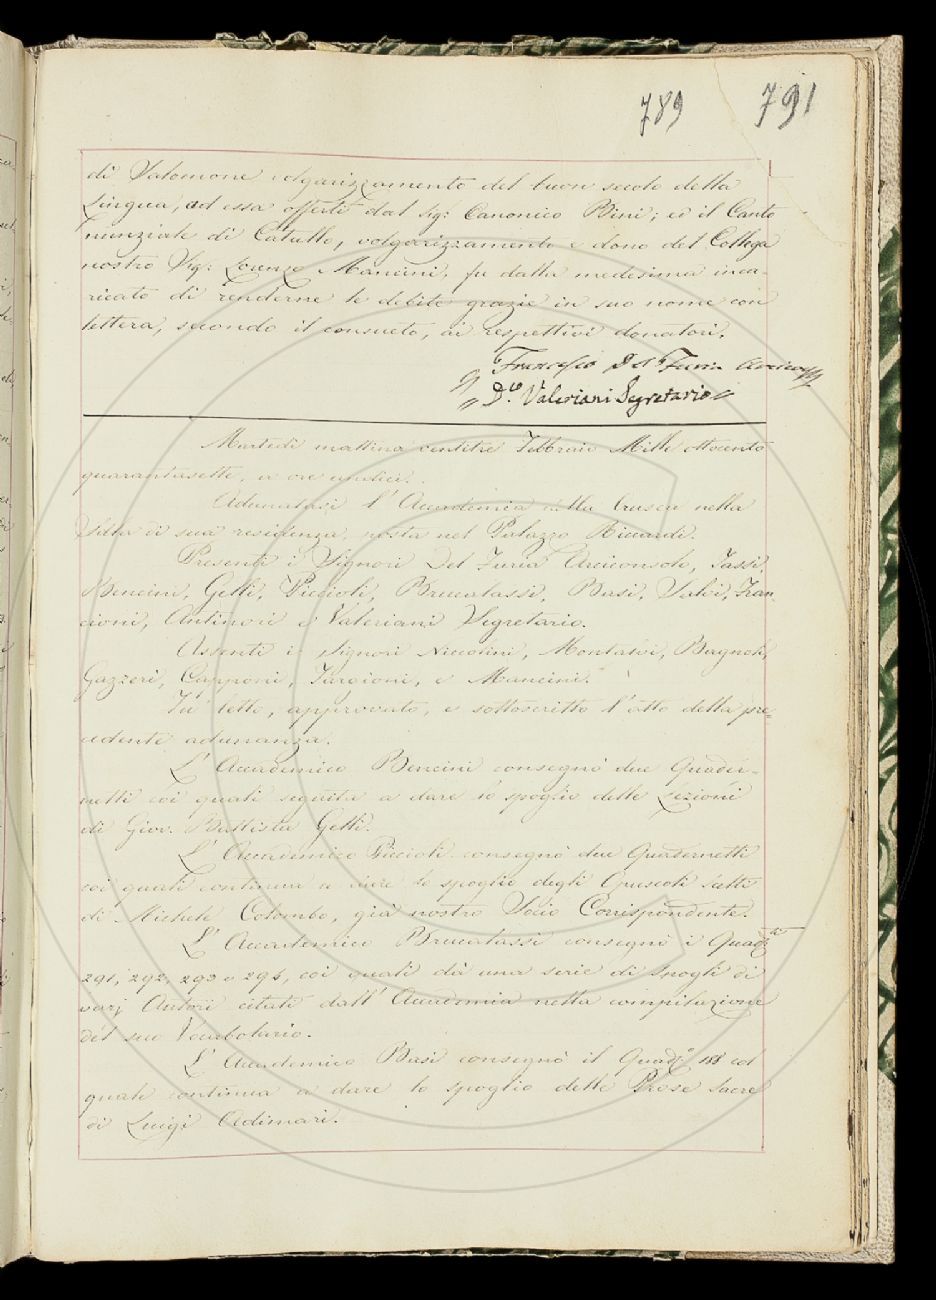 789 791
di Salomone volgarizzamento del buon secolo della
Lingua, ad essa offerti dal Sig: Canonico Bini; ed il Canto
nunziale di Catullo, volgarizzamento e dono del Collega
nostro Sig: Lorenzo Mancini, fu dalla medesima inca-
ricato di renderne le debite grazie in suo nome con
lettera, secondo il consueto, ai respettivi donatori.
Francesco Del Furia Arcicon
Dco Valeriani Segretario
Martedì mattina ventitre Febbraio Mille ottocento
quarantasette, a ore undici.
Adunatasi l'Accademia della Crusca nella
Sala di sua residenza, posta nel Palazzo Riccardi.
Presenti i Signori Del Furia Arciconsolo, Tassi,
Bencini, Gelli, Piccioli, Brucalassi, Busi, Salvi, Fran-
cioni, Antinori e Valeriani Segretario.
Assenti i Signori Niccolini, Montalvi, Bagnoli,
Gazzeri, Capponi, Targioni, e Mancini.
Fu letto, approvato, e sottoscritto l'atto della pre-
cedente adunanza.
L'Accademico Bencini consegnò due Quader-
netti coi quali seguita a dare lo spoglio delle Lezioni
di Giov. Battista Gelli.
L'Accademico Piccioli consegnò due Quadernetti
coi quali continua a dare lo spoglio degli Opuscoli tutti
di Michele Colombo, già nostro Socio Corrispondente.
L'Accademico Brucalassi consegnò i Quad:ti
291, 292, 293 e 294, coi quali dà una serie di Spogli di
varj Autori citati dall'Accademia nella compilazione
del suo Vocabolario.
L'Accademico Busi consegnò il Quad:o 188 col
quale continua a dare lo spoglio delle Prose Sacre
di Luigi Adimari.